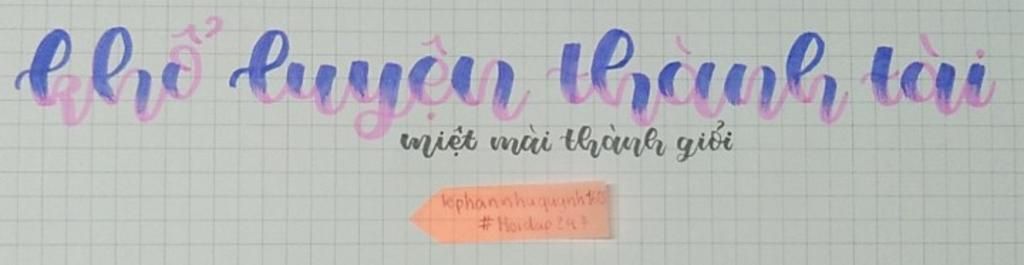 khổ luyện thành tài
miệt mài thành giỏi
#Hoidap247